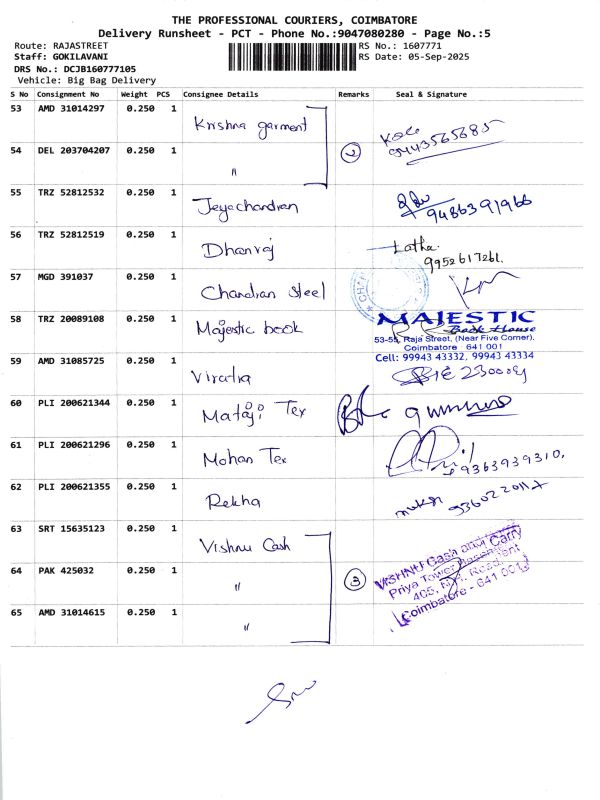 THE PROFESSIONAL COURIERS, COIMBATORE
Delivery Runsheet - PCT - Phone No.:9047080280 - Page No.:5
Route: RAJASTREET RS No.: 1607771
Staff: GOKILAVANI RS Date: 05-Sep-2025
DRS No.: DCJB160777105
Vehicle: Big Bag Delivery
S No Consignment No Weight PCS Consignee Details Remarks Seal & Signature
53 AMD 31014297 0.250 1 Krishna garment 9443565685
54 DEL 203704207 0.250 1 〃 2
55 TRZ 52812532 0.250 1 Jeyachandran 9486391966
56 TRZ 52812519 0.250 1 Dhanraj Latha
9952617261.
57 MGD 391037 0.250 1 Chandran Steel
58 TRZ 20089108 0.250 1 Majestic book MAJESTIC
Book House
53-55, Raja Street, (Near Five Corner),
Coimbatore 641 001
Cell: 99943 43332, 99943 43334
59 AMD 31085725 0.250 1
60 PLI 200621344 0.250 1 Mataji Tex
61 PLI 200621296 0.250 1 Mohan Tex 9363939310.
62 PLI 200621355 0.250 1 Rekha
63 SRT 15635123 0.250 1 Vishnu Cash
64 PAK 425032 0.250 1 〃 3
65 AMD 31014615 0.250 1 〃
VISHNU Cash and Carry
Priya Tower
405, Road,
Coimbatore - 641 001